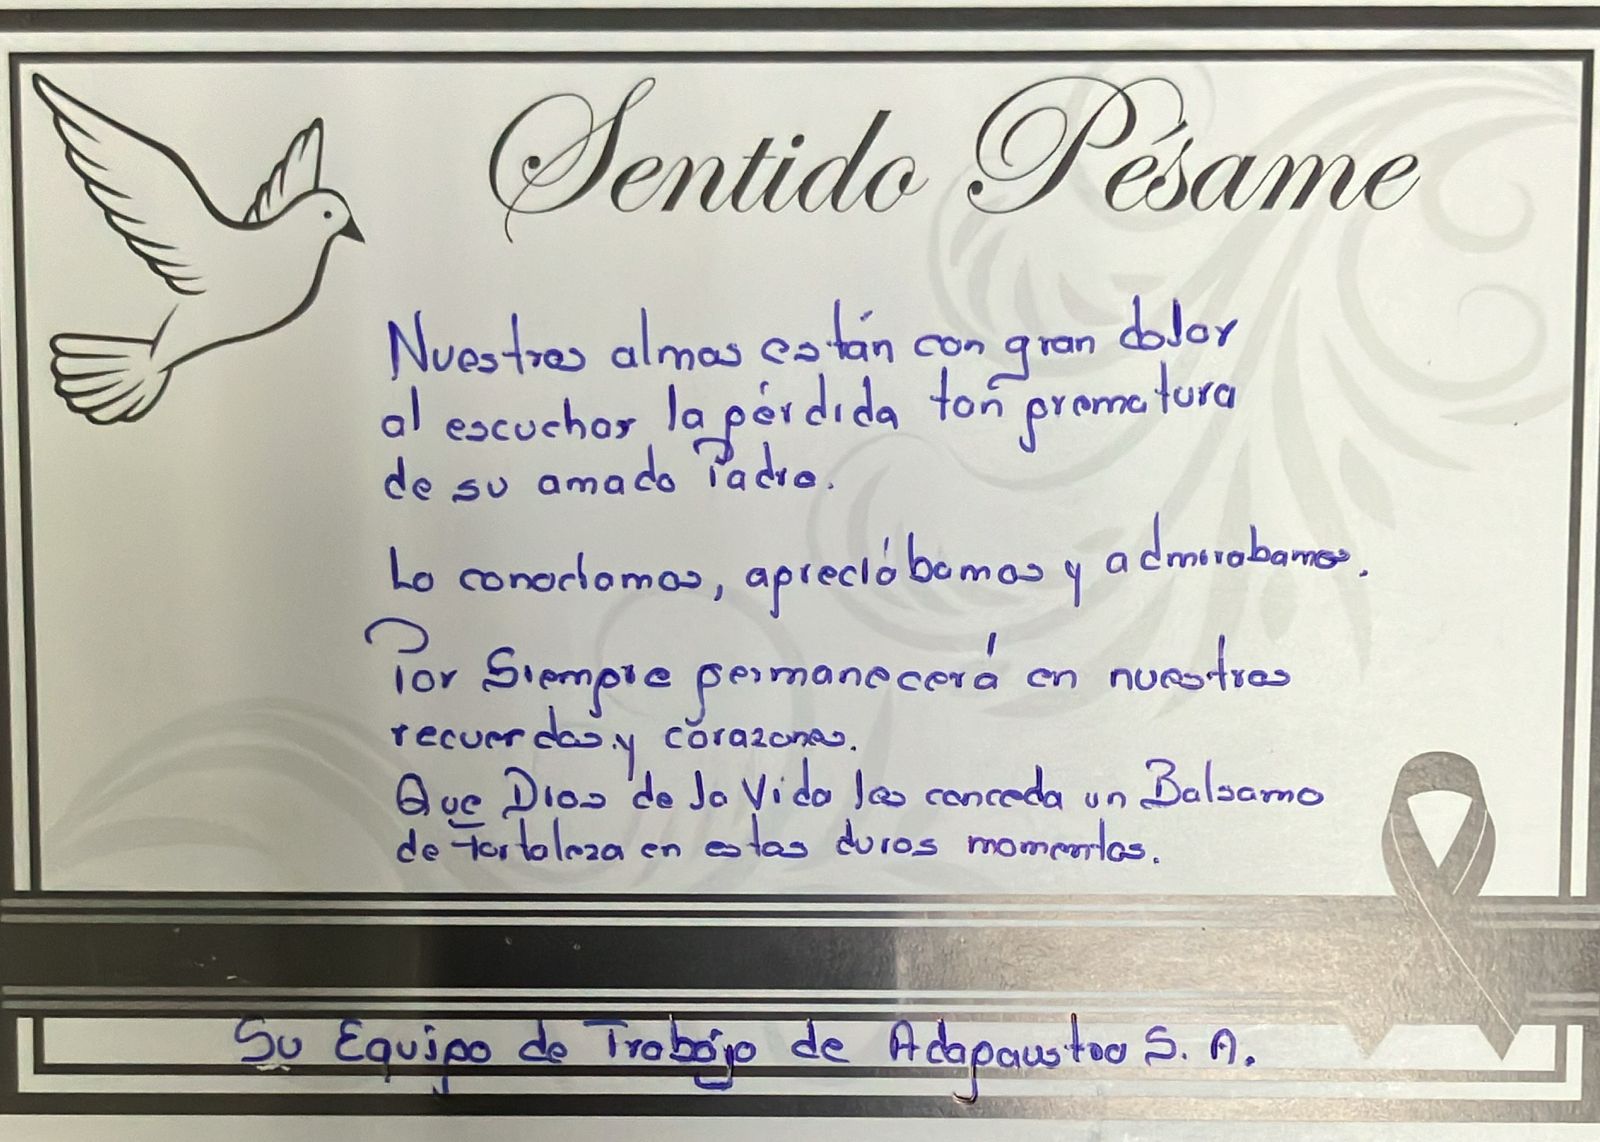 Sentido Pésame
Nuestras almas están con gran dolor
al escuchar la pérdida tan prematura
de su amado Padre.
Lo conociamos, apreciábamos y admirabamos.
Por Siempre permanecerá en nuestros
recuerdos y corazones.
Que Dios de la Vida les conceda un Balsamo
de Fortaleza en estos duros momentos.
Su Equipo de Trabajo de Adapaustro S. A.